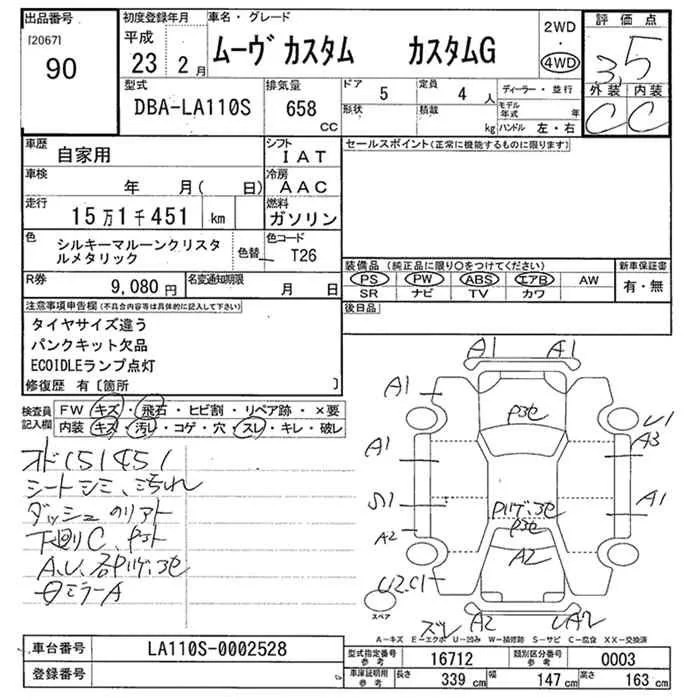 出品番号
[2067]
90
初度登録年月
平成
23 2 月
車名・グレード
ムーヴ カスタム カスタムG
2WD
・
4WD
評価点
3.5
外装 内装
C C
型式
DBA-LA110S
排気量
658 CC
ドア 5
形状
定員 4 人
積載 kg
ディーラー・並行
モデル年式 年
ハンドル 左・右
車歴
自家用
シフト
IAT
車検
年 月( 日)
冷房
AAC
走行
15万1千451 km
燃料
ガソリン
色
シルキーマルーンクリスタルメタリック
色替
色コード
T26
R券
9,080 円
名変通知期限
月 日
セールスポイント(正常に機能するものに限ります)
装備品 (純正品に限り○をつけてください)
PS PW ABS エアB AW
SR ナビ TV カワ
新車保証書
有・無
後日品
注意事項申告欄(不具合内容等は具体的に記入して下さい)
タイヤサイズ違う
パンクキット欠品
ECOIDLEランプ点灯
修復歴 有〔箇所 〕
検査員記入欄
FW キズ・飛石・ヒビ割・リペア跡・×要
内装 キズ・汚レ・コゲ・穴・スレ・キレ・破レ
オド151451
シートシミ、汚れ
ダッシュ
下廻りC、
A.U.
ミラーA
A1 A1
A1
U1
A1
A3
A1
A2
A2
U2.C1
A2
スペア
A2
A-キズ E-エクボ U-凹み W-補修跡 S-サビ C-腐食 XX-交換済
車台番号
LA110S-0002528
登録番号
型式指定番号 参考
16712
類別区分番号 参考
0003
車庫証明用 参考
長さ 339 cm
幅 147 cm
高さ 163 cm